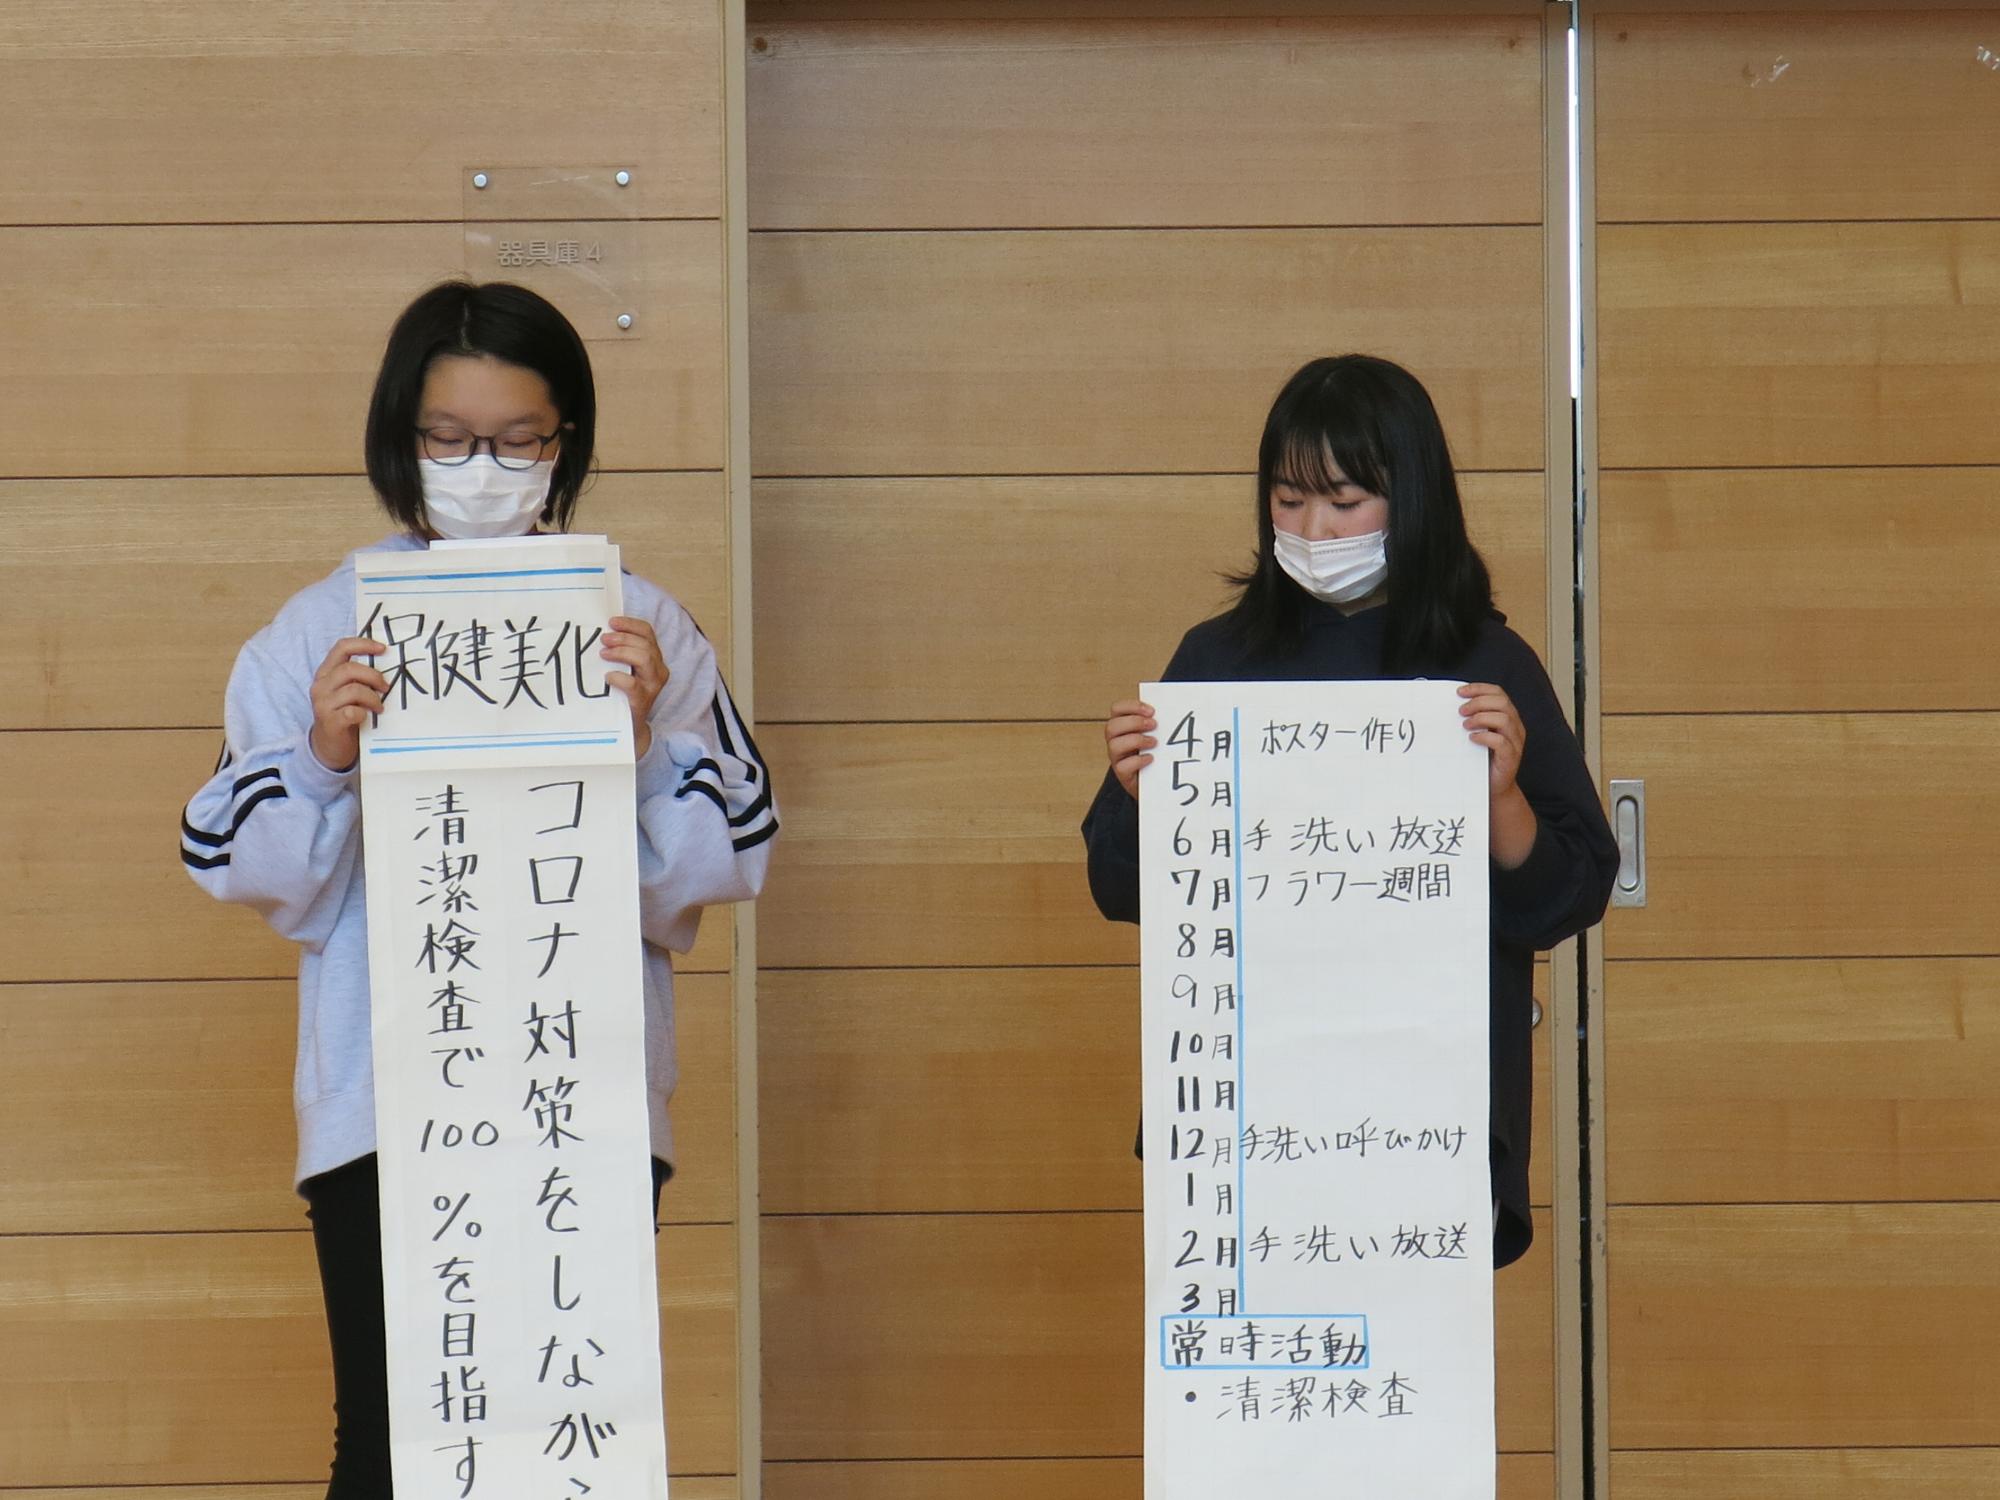 器具庫4
保健美化
コロナ対策をしながら、
清潔検査で100%を目指す
4月 ポスター作り
5月
6月 手洗い放送
7月 フラワー週間
8月
9月
10月
11月
12月 手洗い呼びかけ
1月
2月 手洗い放送
3月
常時活動
・清潔検査